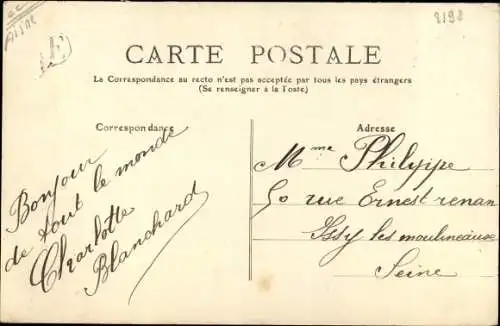 Aisne
8198
E
CARTE POSTALE
La Correspondance au recto n'est pas acceptée par tous les pays étrangers
(Se renseigner à la Poste)
Correspondance
Bonjour
de tout le monde
Charlotte
Blanchard
Adresse
Mme Philyppe
50 rue Ernest renan
Issy les moulineaux
Seine